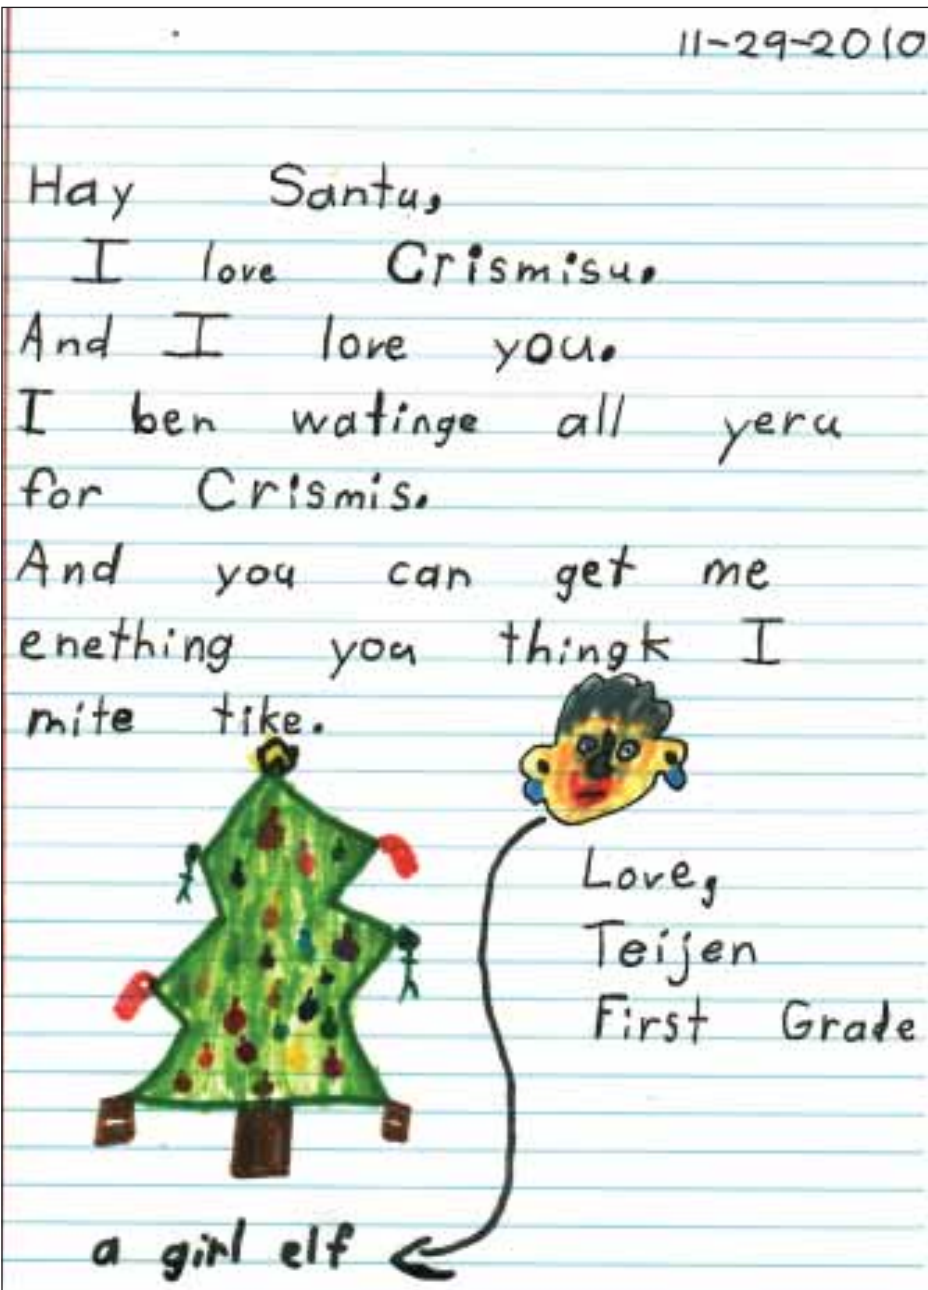 11-29-2010
Hay Santu,
I love Crismisu.
And I love you.
I ben watinge all yeru
for Crismis.
And you can get me
enething you thingk I
mite tike.
Love,
Teijen
First Grade
a girl elf